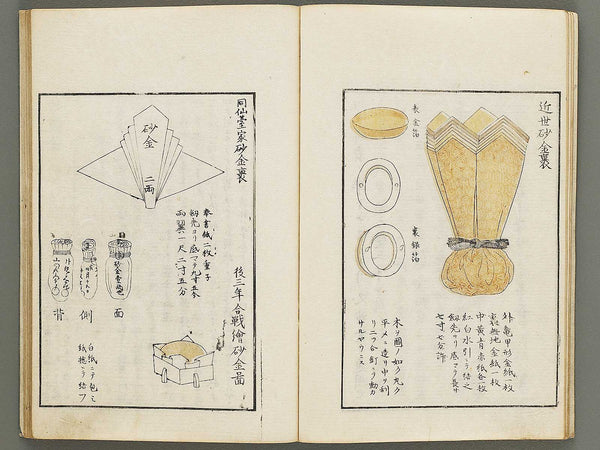 近世砂金裹
外亀甲形金紙一枚
裏無地金紙一枚
中黄青赤紙各一枚
紅白水引ニテ結之
剱先ヨリ底マテ長サ
七寸七分許
表金箔
裏銀箔
木ヲ圖ノ如ク丸ク
平メニ造リ中ヲ刳
リニツ合釘ニテ動カ
サルヤウニス
同仙臺家砂金裹
砂金
二両
奉書紙二枚重子
剱先ヨリ底マテ九寸五分
両翼一尺二寸五分
後三年合戰繪砂金圖
面
側
背
白紙ニテ包ミ
紙捻ニテ結フ